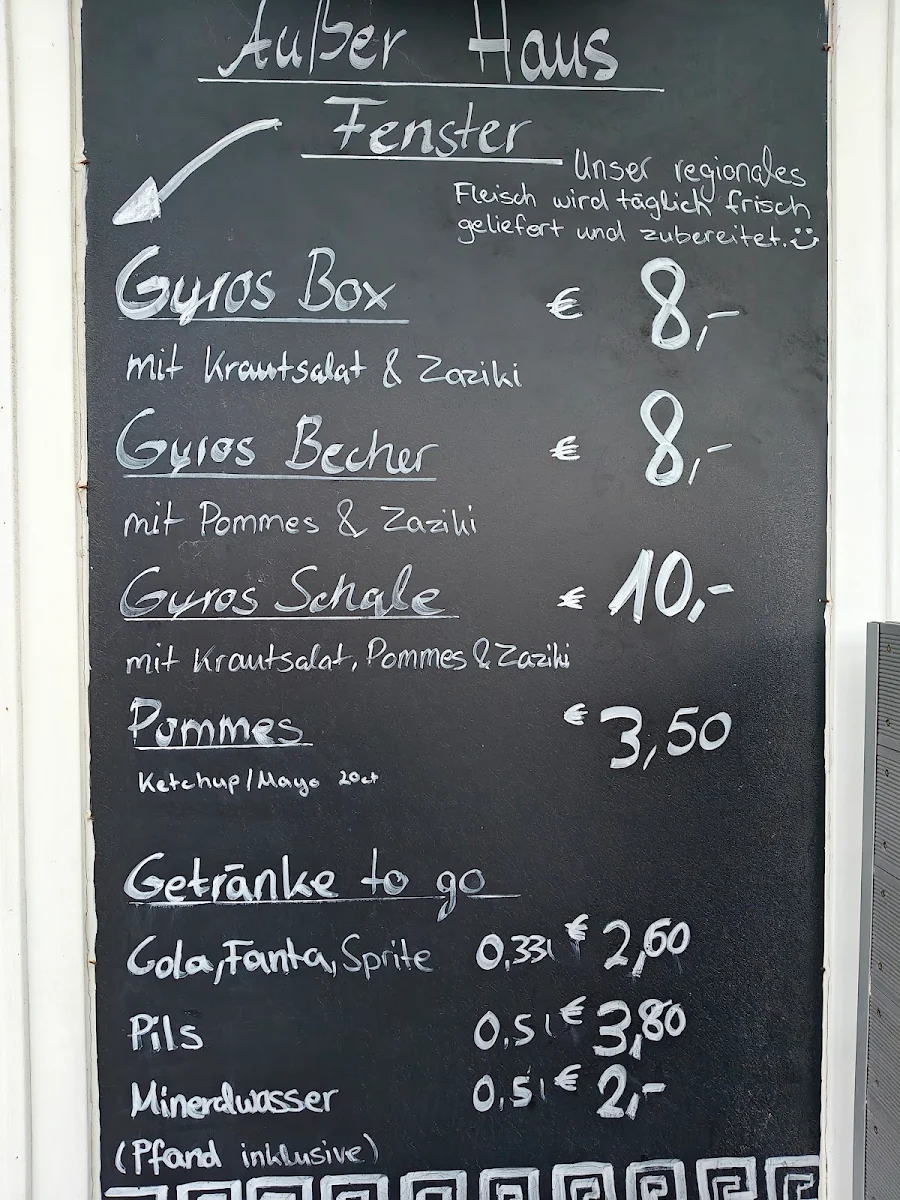 Außer Haus
Fenster
Unser regionales
Fleisch wird täglich frisch
geliefert und zubereitet.
Gyros Box € 8,-
mit Krautsalat & Zaziki
Gyros Becher € 8,-
mit Pommes & Zaziki
Gyros Schale € 10,-
mit Krautsalat, Pommes & Zaziki
Pommes € 3,50
Ketchup/Mayo 20ct
Getränke to go
Cola, Fanta, Sprite 0,33l € 2,60
Pils 0,5l € 3,80
Mineralwasser 0,5l € 2,-
(Pfand inklusive)